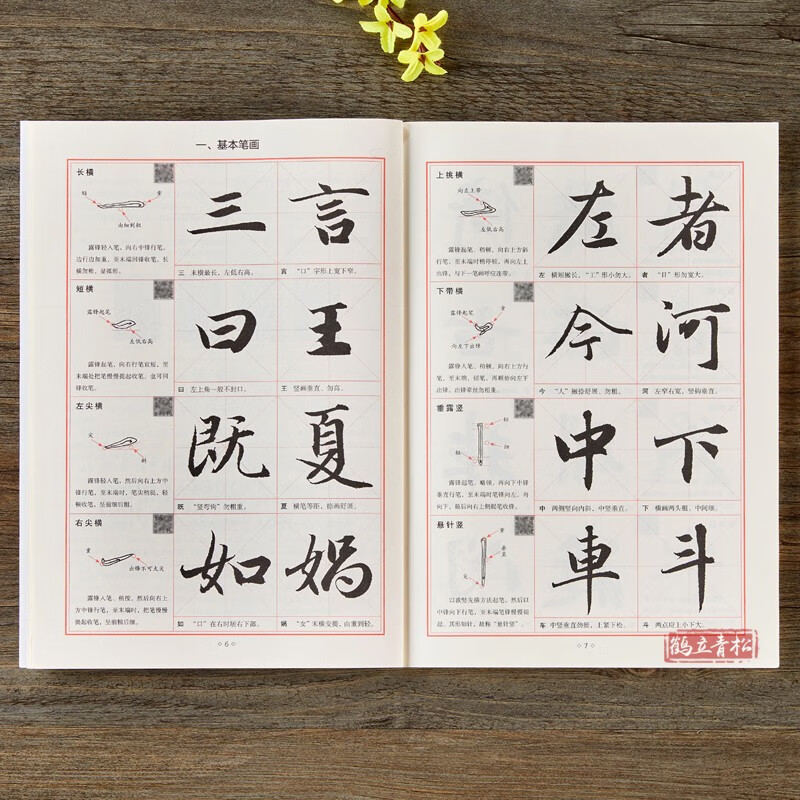 一、基本笔画
长横
轻
重
由细到粗
露锋轻入笔，向右中锋行笔，
边行边加重，至末端回锋收笔，长
横勿粗，显弧形。
三
三 末横最长，左低右高。
言
言 “口”字形上宽下窄。
短横
露锋起笔
左低右高
露锋起笔，向右行笔宜短，至
末端处把笔慢慢提起收笔，也可回
锋收笔。
曰
曰 左上角一般不封口。
王
王 竖画垂直、勿高。
左尖横
尖
斜
露锋入笔，然后向右上方中
锋行笔，至末端时，笔尖稍提，轻
顿收笔，呈前细后粗。
既
既 “竖弯钩”勿粗重。
夏
夏 横笔等距，捺画舒展。
右尖横
重
出锋不可太尖
露锋入笔，稍按，然后向右上
方中锋行笔，至末端时，把笔慢慢
提起收笔，呈前粗后细。
如
如 “口”在右时须右下部。
娲
娲 “女”末横变提，由重到轻。
6
上挑横
向左上带
左低右高
露锋起笔，稍顿，向右上方斜
行笔，至末端时稍停顿，再向左上
出锋，与下一笔画呼应连带。
左
左 横短撇长，“工”形小勿大。
者
者 “日”形勿宽大。
下带横
露锋起笔
向左下出锋
露锋入笔，稍顿，向右上方行
笔，至末端，扭笔，再顺势向左下
出锋，出锋牵丝勿粗重。
今
今 “人”撇捺舒展，勿粗。
河
河 左窄右宽，竖钩垂直。
垂露竖
轻
细
轻
露锋起笔，略顿，再向下中锋
垂直行笔，至末端时笔锋向左，再
向下，最后向右上侧提笔收锋。
中
中 两侧竖向内斜，中竖垂直。
下
下 横画两头粗，中间细。
悬针竖
重
垂直
尖
以欲竖先横方法起笔，然后以
中锋向下行笔，至末端笔锋慢慢提
起，其形如针，故称“悬针竖”。
車
车 中竖垂直勿细，上紧下松。
斗
斗 两点应上小下大。
7
鹤立青松